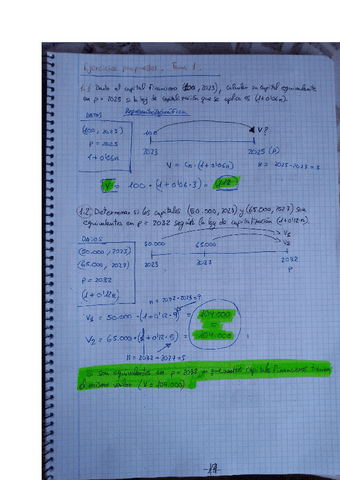 Ejercicios propuestos. Tema 1.
1.1 Dado el capital financiero (100, 2023), calcular su capital equivalente
en p = 2025 si la ley de capitalización que se aplica es (1+0'06n).
DATOS
Representación gráfica
(100, 2023)
p = 2025
1+0'06n
100
V?
2023
2025 (p)
V = Cn · (1+0'06n)
V = 100 · (1+0'06·3) =
1.2) Determinar si los capitales (50.000, 2023) y (65.000, 2027) son
equivalentes en p = 2032 según la ley de capitalización (1+0'12n).
DATOS
(50.000, 2023)
(65.000, 2027)
p = 2032
(1+0'12n)
50.000
65.000
V1
V2
2023
2023
2032
p
n = 2032-2023=9
V1 = 50.000 · (1+0'12·9) = 104.000
=
V2 = 65.000 · (1+0'12·5) = 104.000
n = 2032-2027=5
Si son equivalentes en p = 2032 capitales financieros tienen
el mismo valor (V = 104.000)